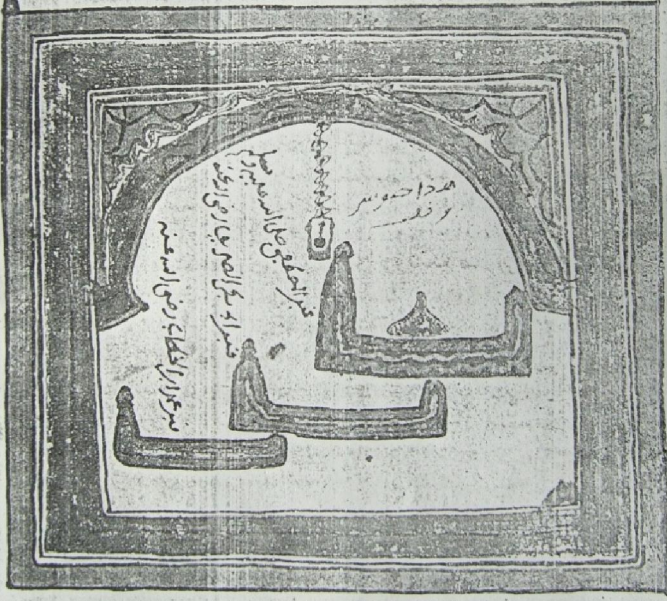 هذا
قبر المصطفى صلى الله عليه وسلم
قبر ابي بكر الصديق رضي الله عنه
قبر عمر ابن الخطاب رضي الله عنه